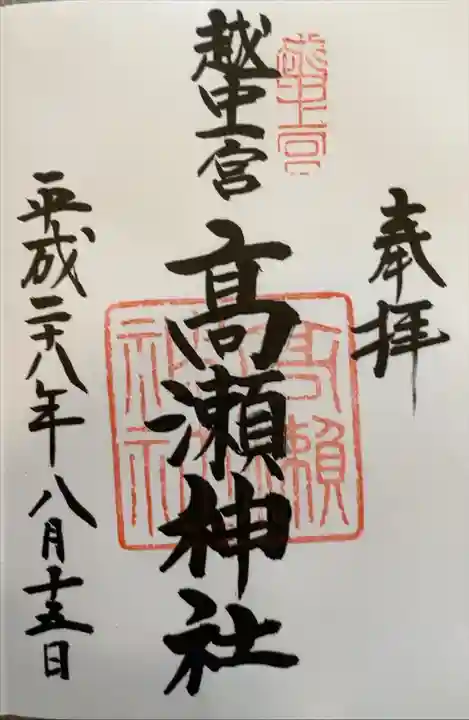 奉拝
越中一宮
越中一宮
髙瀬神社
高瀬神社
平成二十八年八月十五日